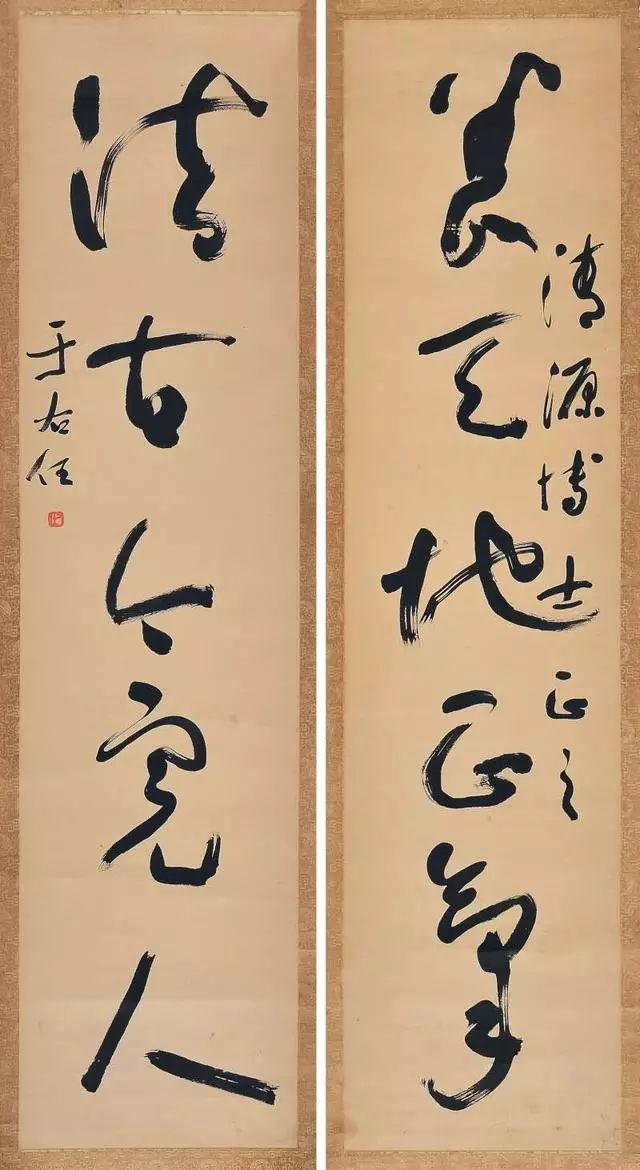 清源博士正之
養天地正氣
法古今完人
于右任